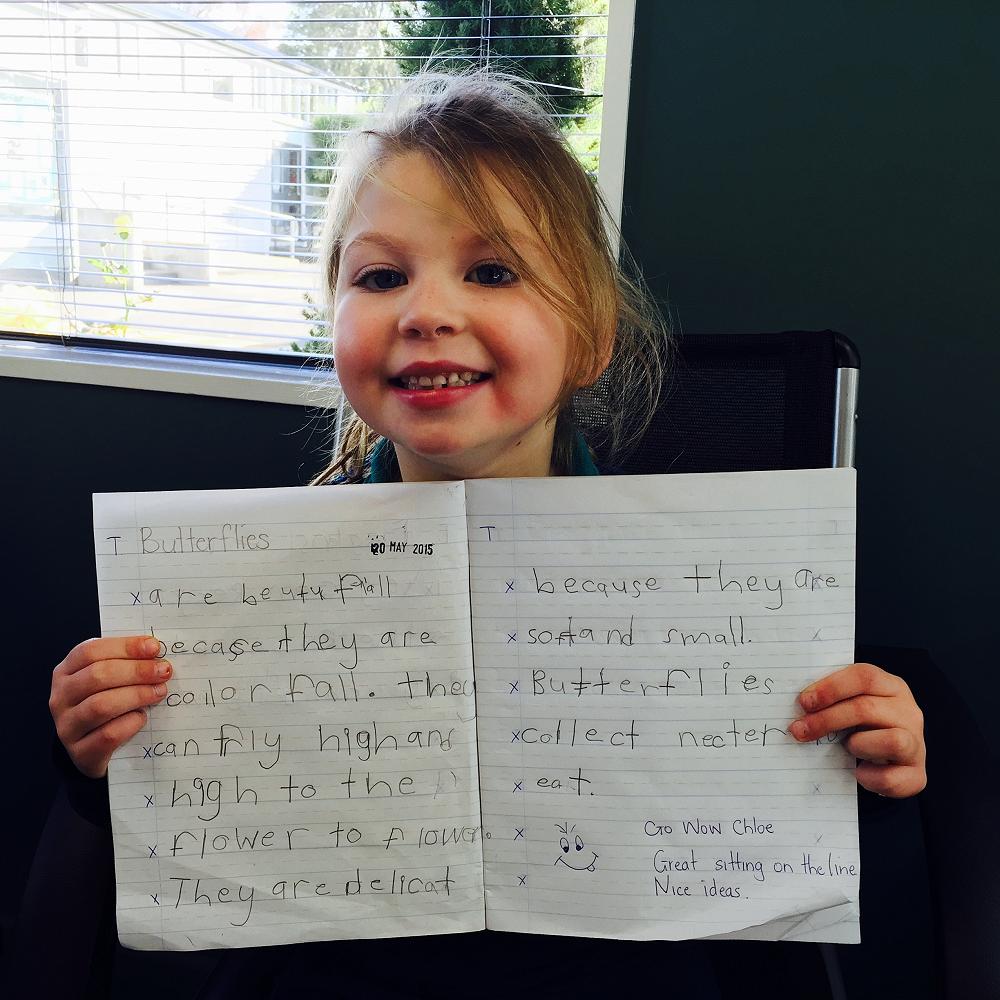 T Butterflies
20 MAY 2015
x are beutufall
x becase they are
coilor fall. they
x can frly high and
x high to the
x flower to flower.
x They are delicat
T
x because they are
x soft and small.
x Butterflies
x collect necter
x eat.
x
x
Go Wow Chloe
Great sitting on the line
Nice ideas.